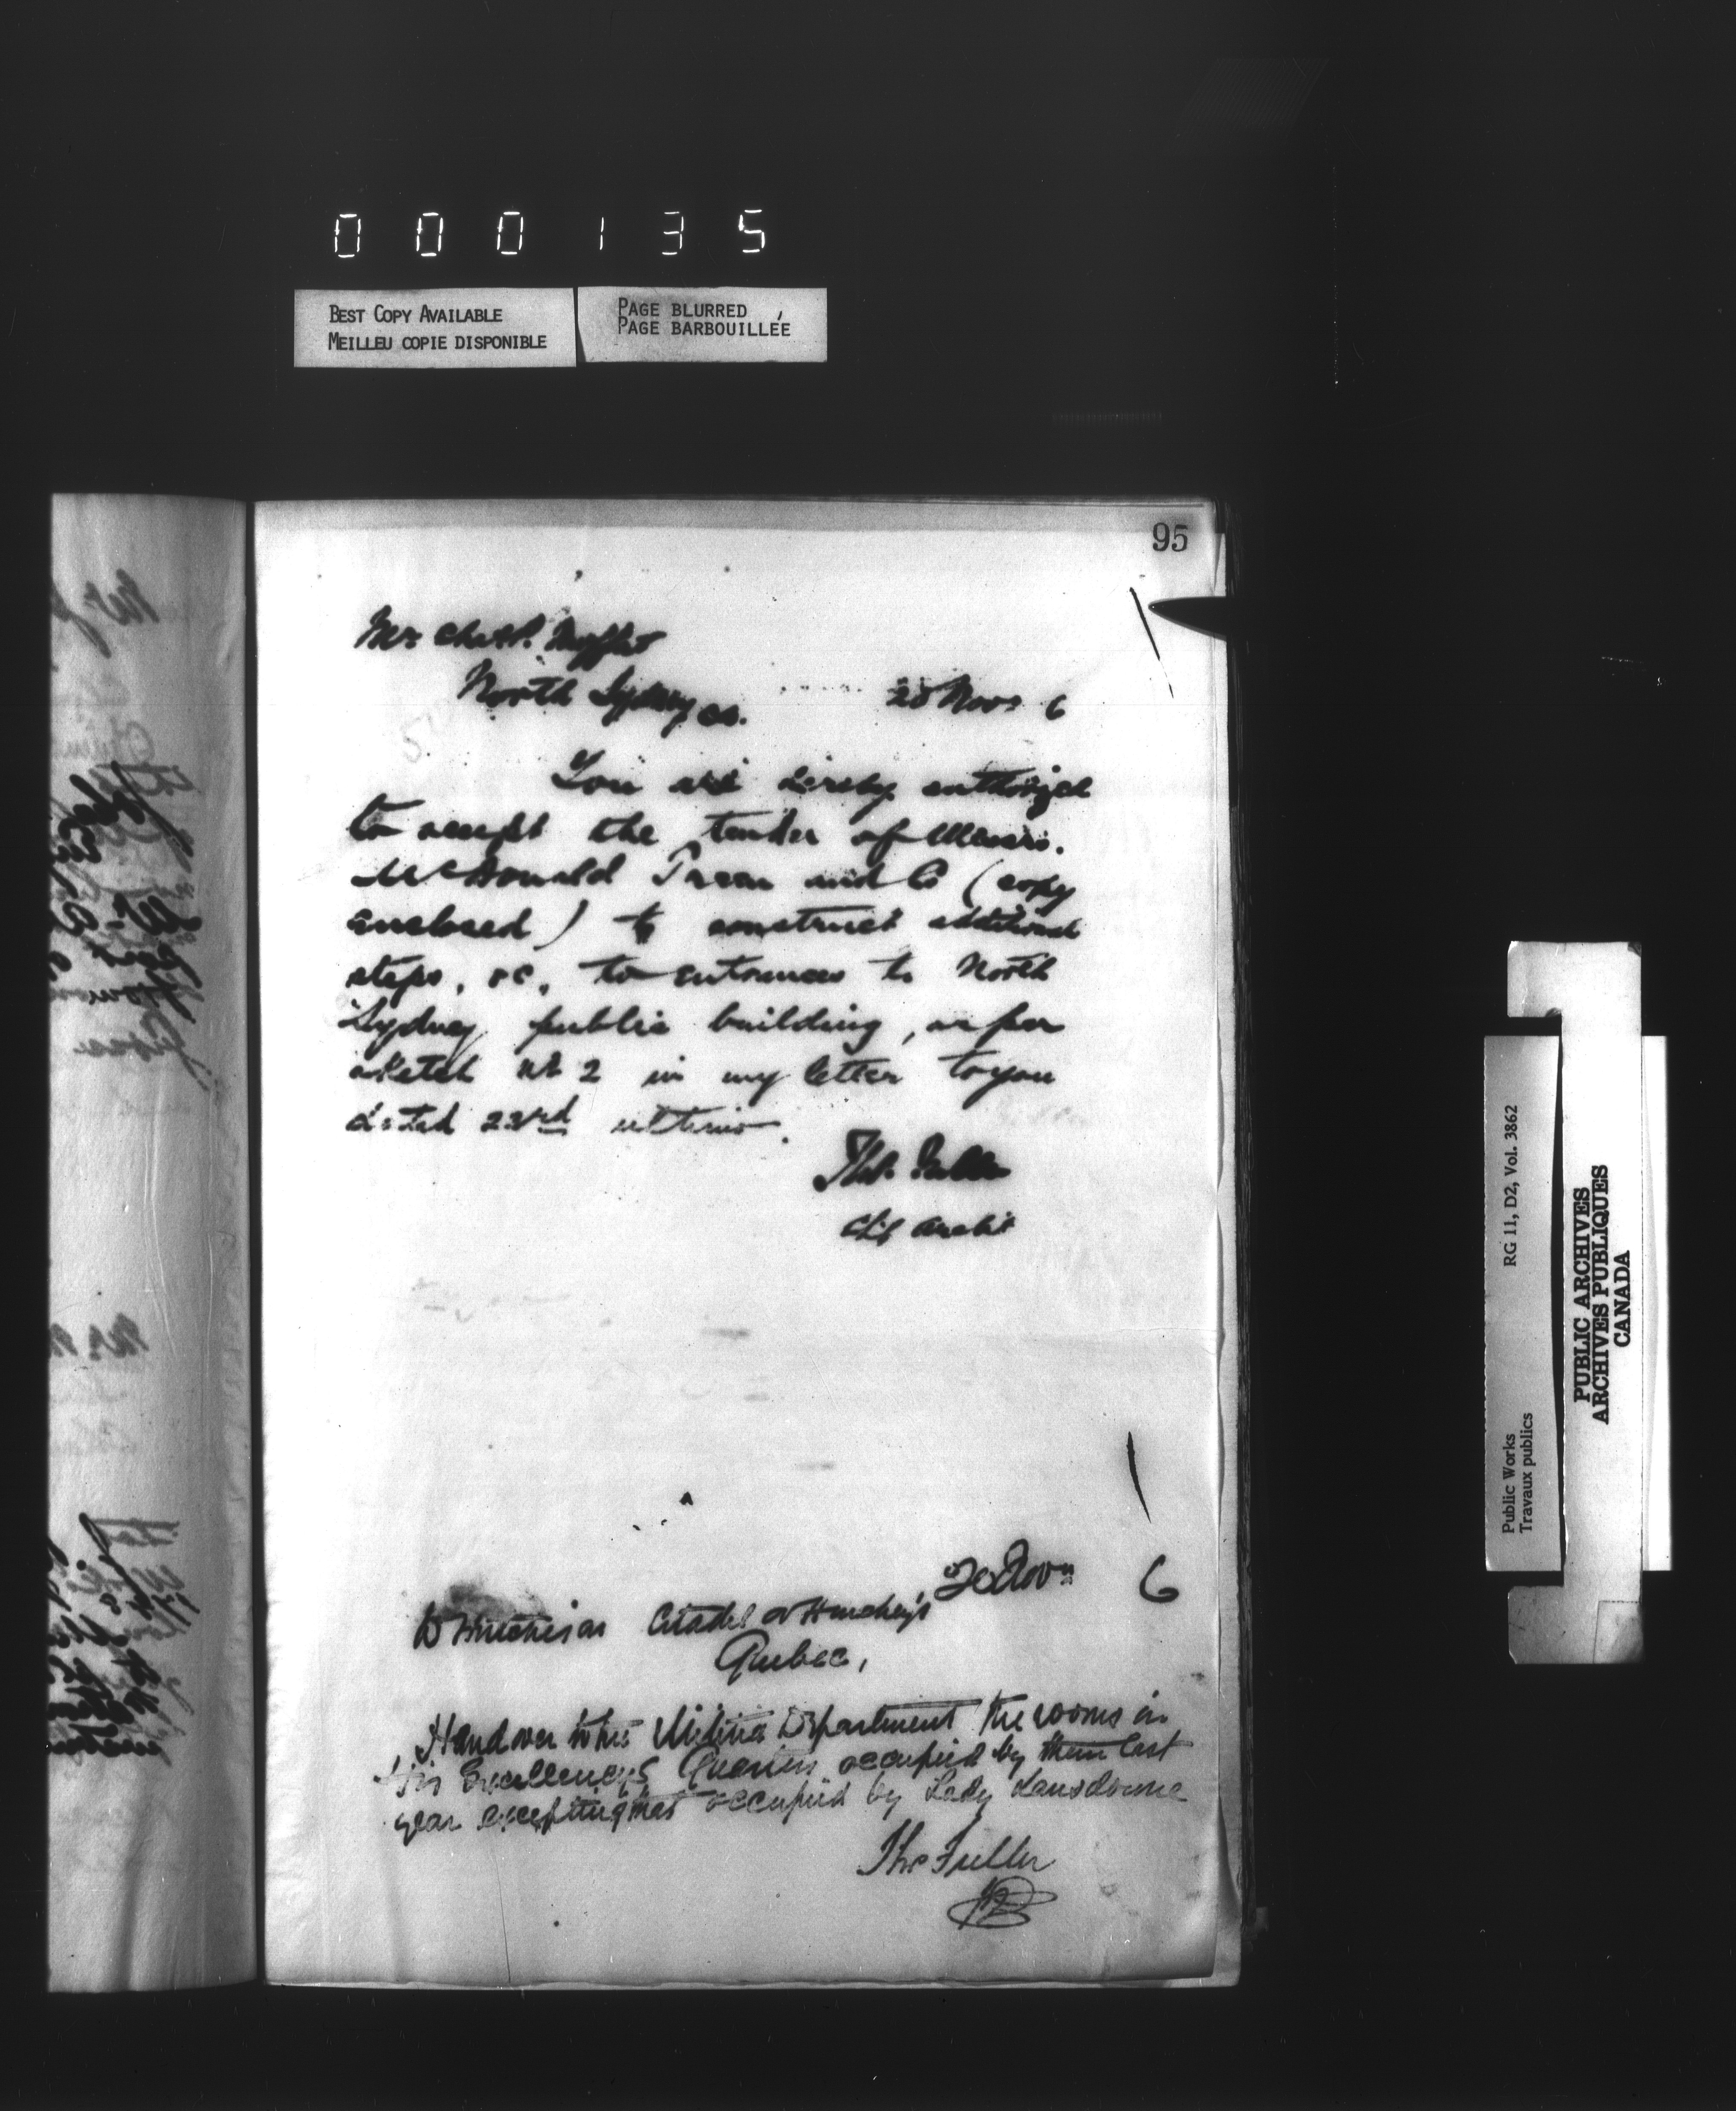 000135
BEST COPY AVAILABLE
MEILLEU COPIE DISPONIBLE
PAGE BLURRED
PAGE BARBOUILLÉE
95
Mr. Chas P.
North Sydney CB.
20 Nov. 6
You are hereby authorized
to accept the tender of Messrs.
McDonald and Co (copy
enclosed) to construct additional
steps, &c, to entrances to North
Sydney public building, as per
sketch No 2 in my letter to you
dated 23rd ultimo.
Thos. Fuller
Chf Archit
20 Nov 6
D Hutchison Citadel
Quebec,
Hand over to the Militia Department the rooms in
His Excellency's Quarters occupied by them last
year excepting that occupied by Lady Lansdowne
Thos Fuller
Public Works
Travaux publics
RG 11, D2, Vol. 3862
PUBLIC ARCHIVES
ARCHIVES PUBLIQUES
CANADA